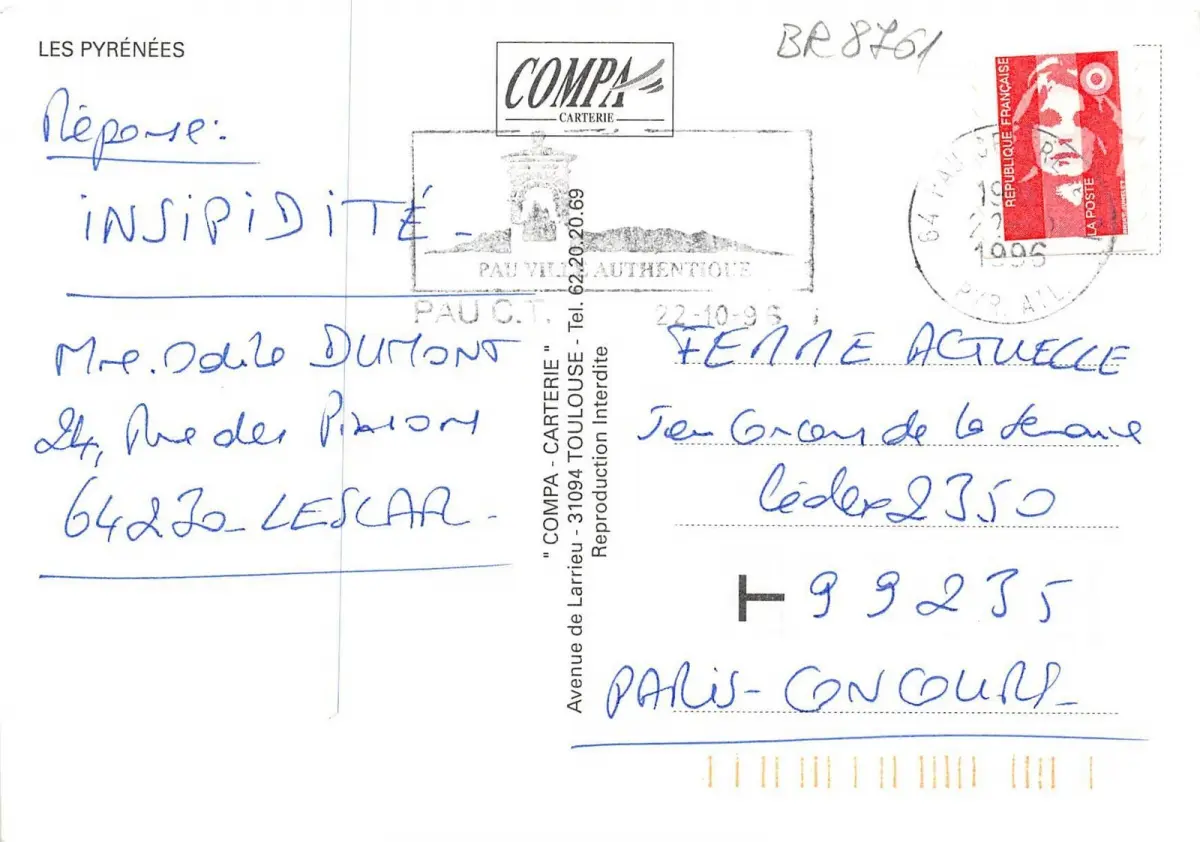 LES PYRÉNÉES
BR 8761
COMPA
CARTERIE
RÉPUBLIQUE FRANÇAISE
LA POSTE
64 PAU
1996
PYR. ATL.
PAU VILLE AUTHENTIQUE
PAU C.T. 22-10-96
Réponse:
INSIPIDITÉ -
Mme. Odile DUMONT
24, Rue des
64230 - LESCAR -
" COMPA - CARTERIE "
Avenue de Larrieu - 31094 TOULOUSE - Tel. 62.20.20.69
Reproduction Interdite
FEMME ACTUELLE
Jeu Concours de la Semaine
Cédex 2350
T 99235
PARIS - CONCOURS -